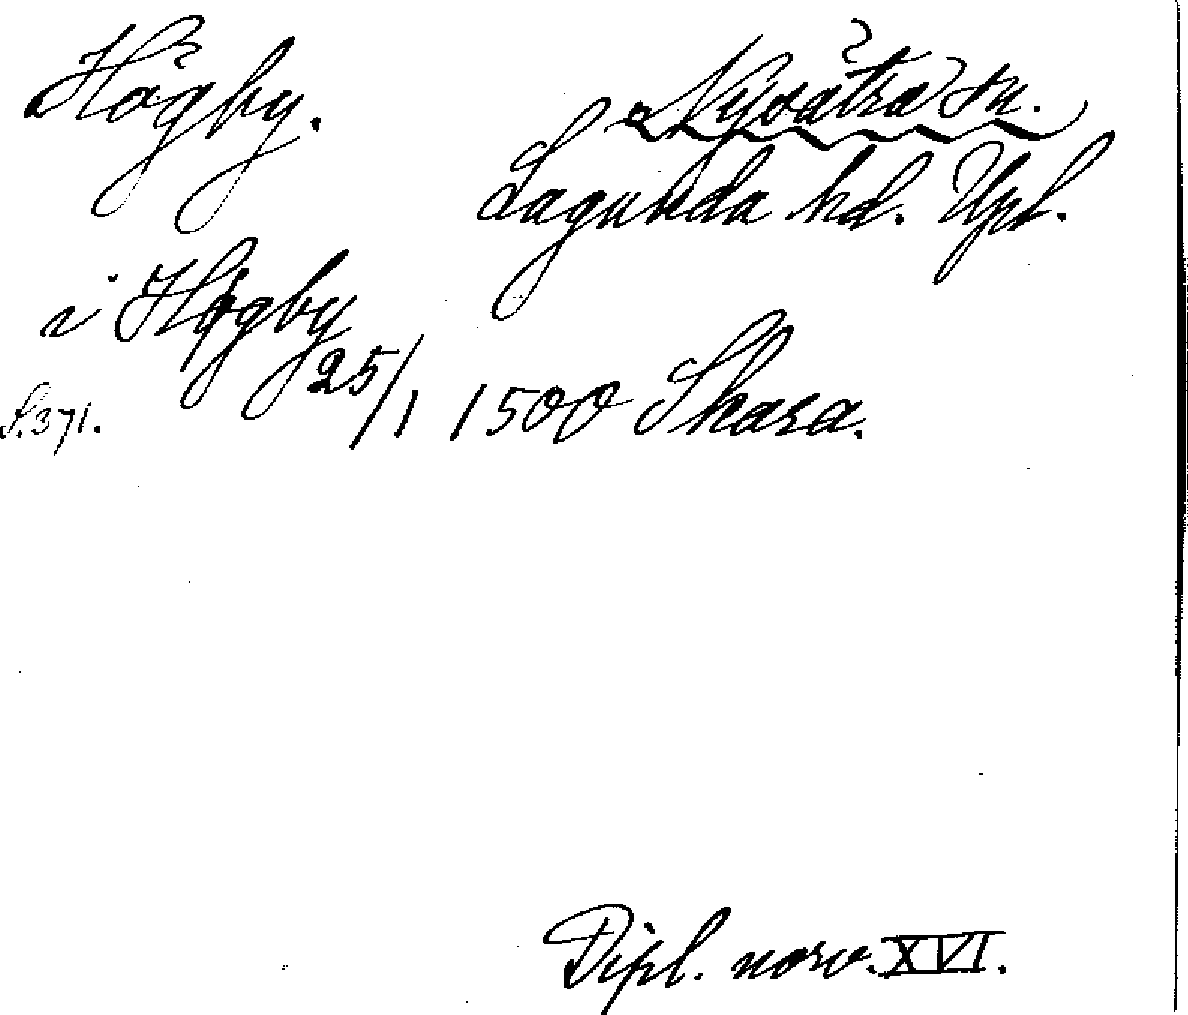 Högby.
Nysätra sn.
Lagunda hd. Upl.
i Høgby
25/1 1500 Skara.
S. 371.
Dipl. norv. XVI.